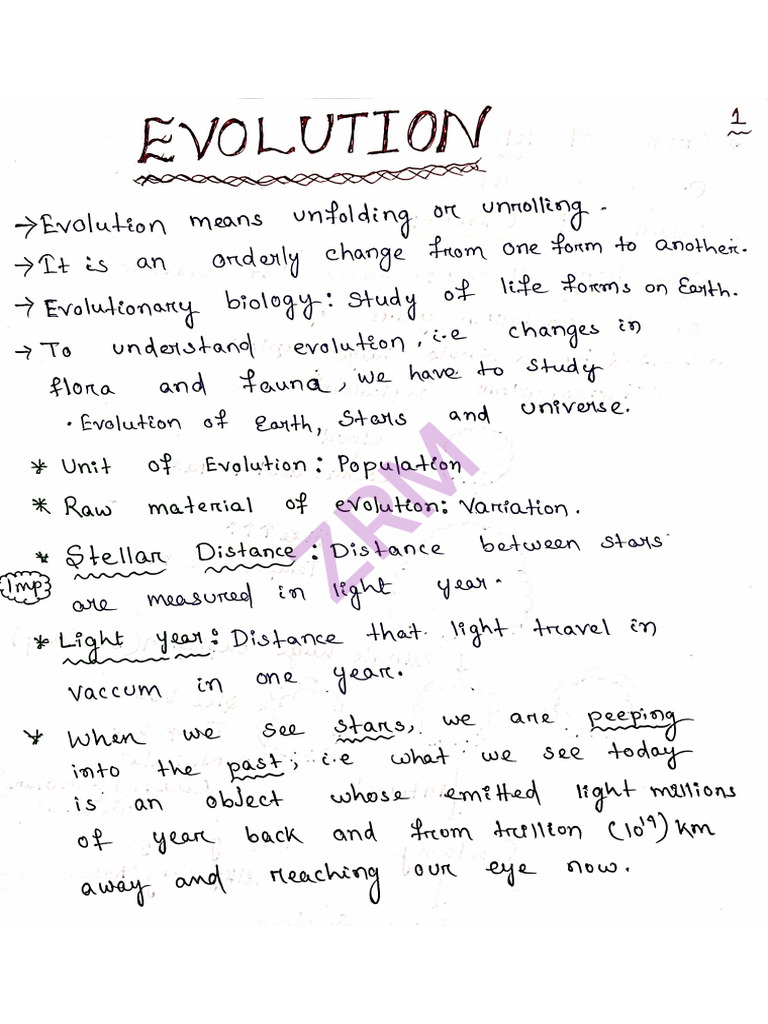 EVOLUTION
1
→ Evolution means unfolding or unrolling.
→ It is an orderly change from one form to another.
→ Evolutionary biology: Study of life forms on Earth.
→ To understand evolution, i.e changes in
flora and fauna, we have to study
• Evolution of Earth, Stars and universe.
* Unit of Evolution: Population
* Raw material of evolution: Variation.
* Stellar Distance: Distance between stars
Imp
are measured in light year.
* Light year: Distance that light travel in
vaccum in one year.
* When we see stars, we are peeping
into the past; i.e what we see today
is an object whose emitted light millions
of year back and from trillion (10¹⁹) km
away and reaching our eye now.
ZRM